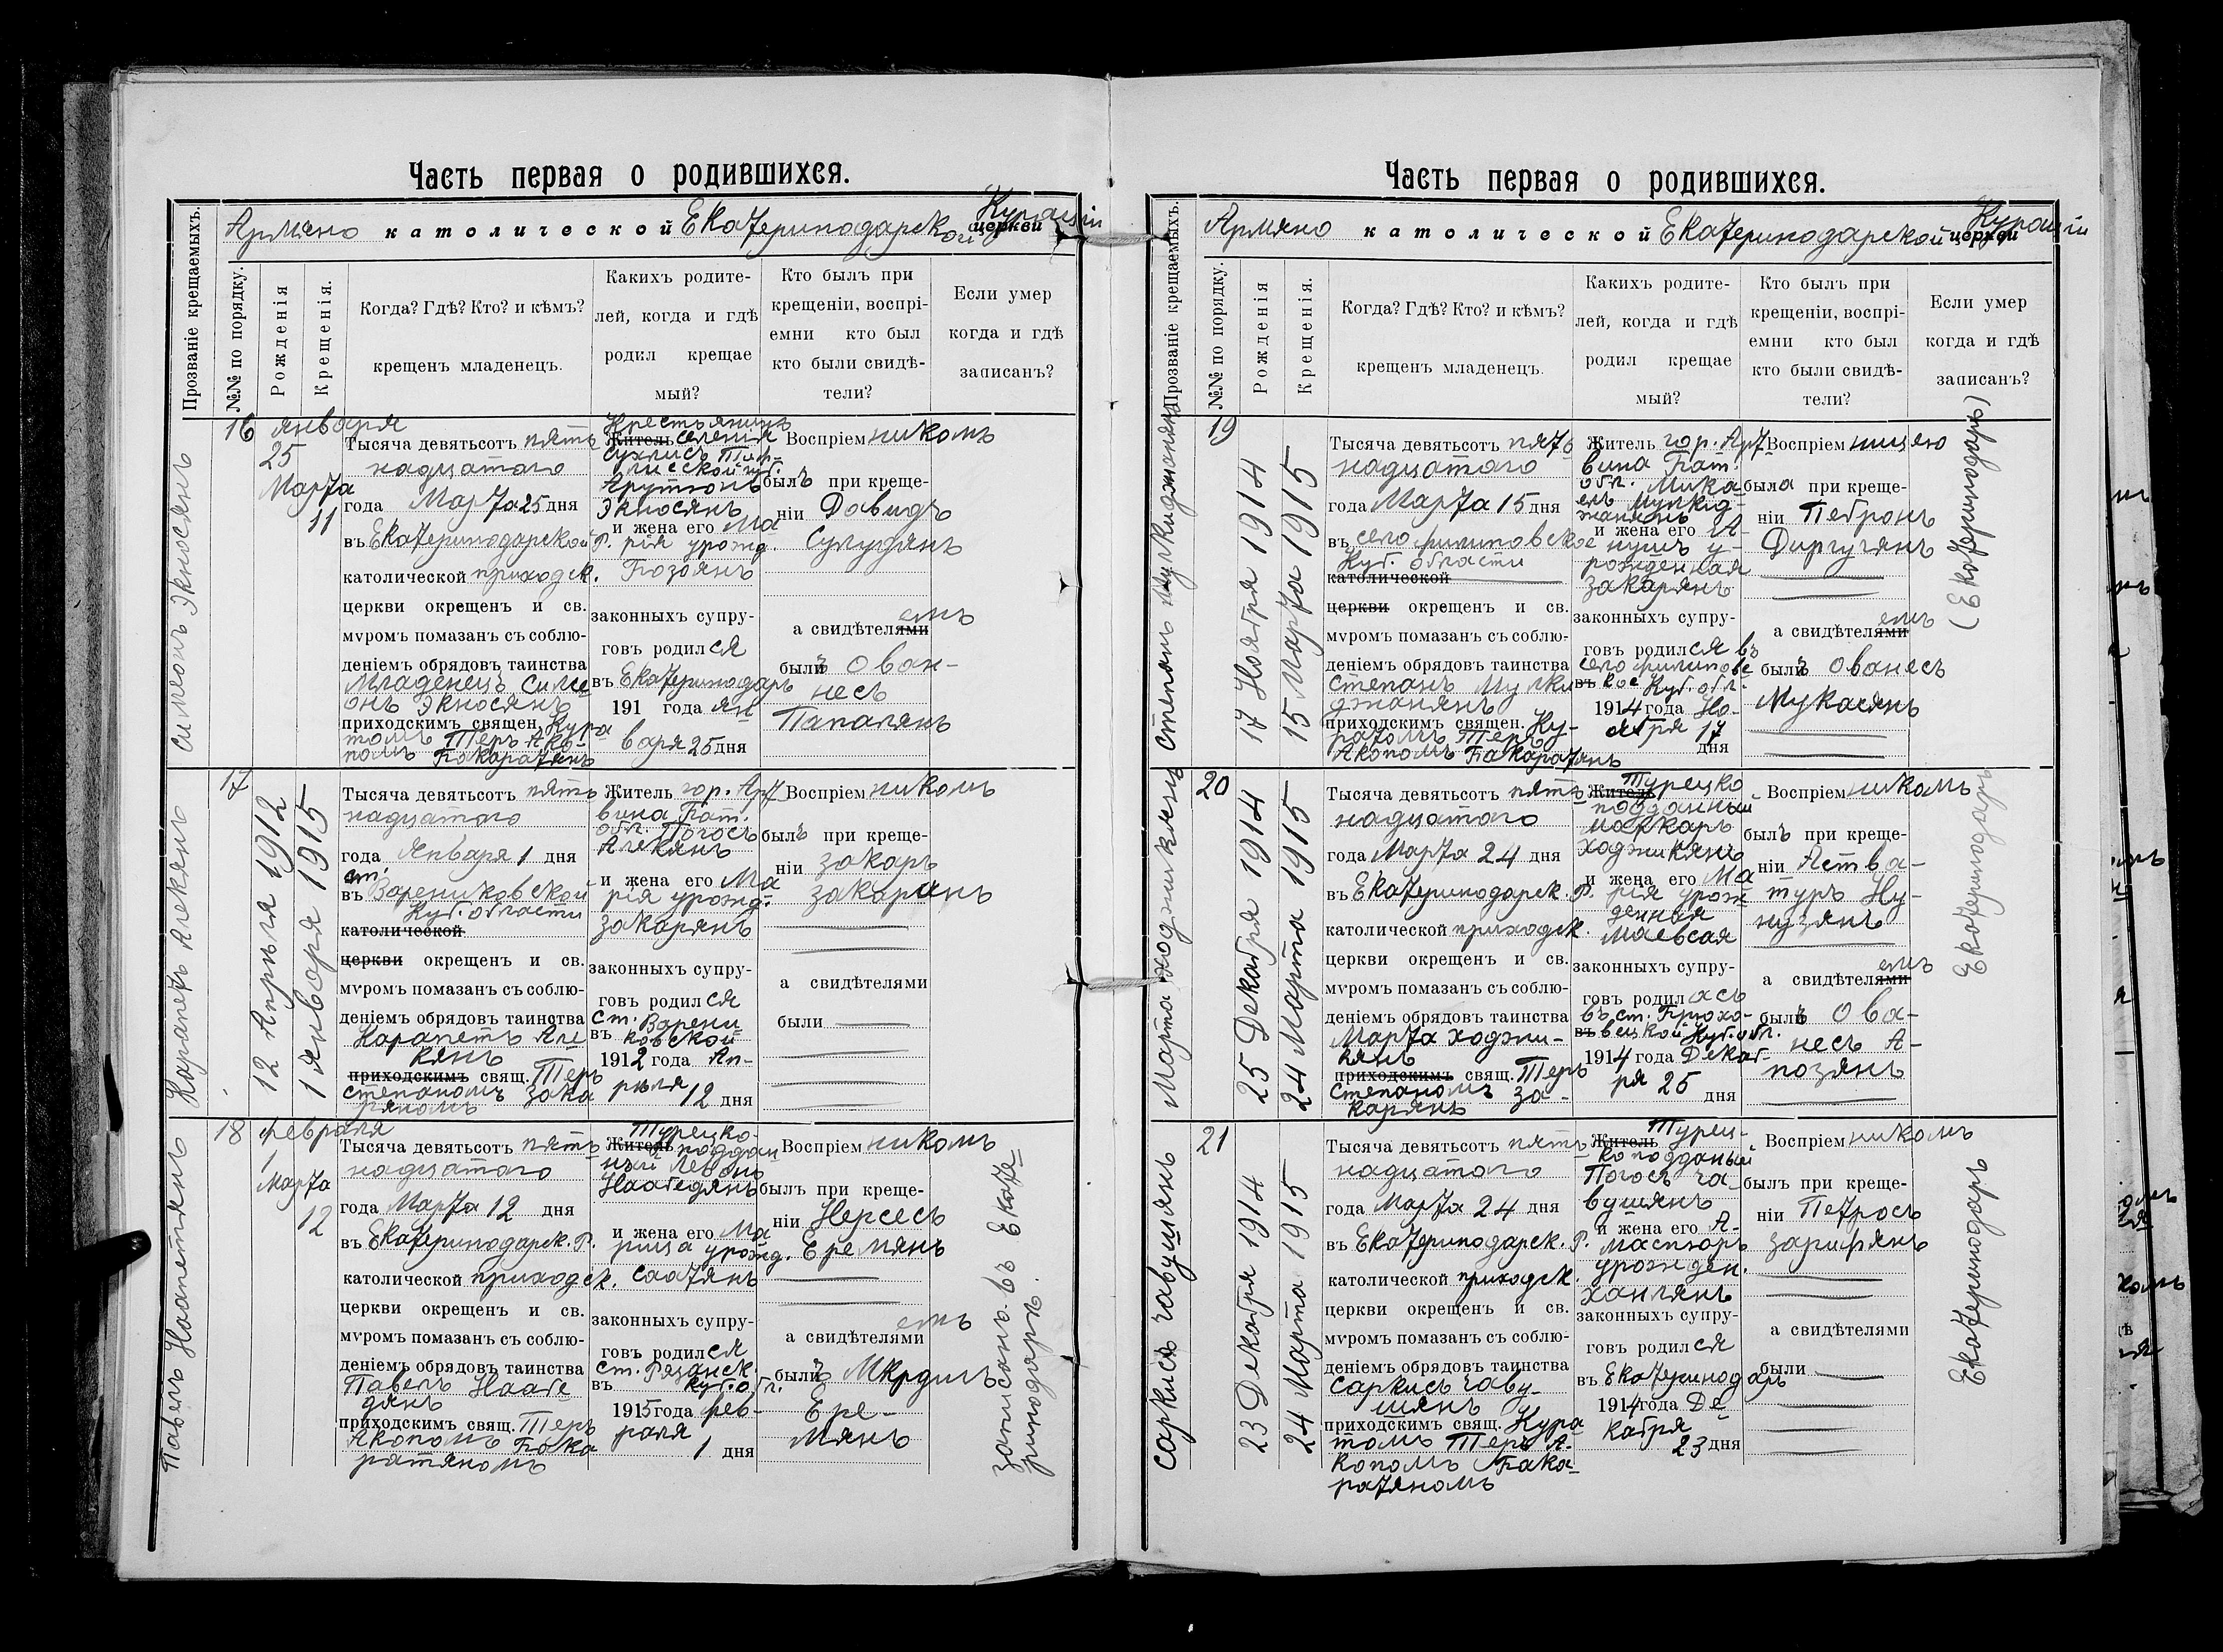 Часть первая о родившихся.
Армяно католической Екатеринодарской церкви Курации
Прозваніе крещаемыхъ.
№№ по порядку.
Рожденія
Крещенія.
Когда? Гдѣ? Кто? и кѣмъ?
крещенъ младенецъ.
Какихъ родите-
лей, когда и гдѣ
родил крещае
мый?
Кто былъ при
крещеніи, воспрі-
емни кто был
кто были свидѣ-
тели?
Если умер
когда и гдѣ
записанъ?
Симеонъ Экносянъ
16
января
25
Марта
11
Тысяча девятьсотъ пят
надцатаго
года Марта 25 дня
въ Екатеринодарской Р.
католической приходск.
церкви окрещенъ и св.
мѵромъ помазан съ соблю-
деніемъ обрядовъ таинства
Младенецъ Симе
онъ Экносянъ
приходскимъ священ. Кура
томъ Теръ Ако-
помъ
Крестьянинъ
Житель селенія
Арутюнъ
Экносянъ
и жена его Ма
рія урожд.
Бозоянъ
законныхъ супру-
говъ родился
въ Екатеринодаръ
191 года ян
варя 25 дня
Воспріем никомъ
былъ при креще-
ніи Давидъ
а свидѣтелями емъ
былиъ Ован-
несъ
Папапянъ
Карапетъ Алекянъ
17
12 Апрѣля 1912
1 января 1915
Тысяча девятьсотъ пять
надцатаго
года Января 1 дня
ст.
въ Варениковской
Куб. области
католической
церкви окрещенъ и св.
мѵромъ помазан съ соблю-
деніемъ обрядовъ таинства
Карапетъ Але
кянъ
приходскимъ свящ. Теръ
Степаномъ Зака
ряномъ
Житель гор. Арт
вина Бат.
обл. Погосъ
Алекянъ
и жена его Ма
рія урожд.
Закарянъ
законныхъ супру-
говъ родился
ст. Варени
въ ковской
1912 года Ап-
рѣля
12 дня
Воспріем никомъ
былъ при креще-
ніи Закаръ
Закарянъ
а свидѣтелями
были
Павелъ Наапетянъ
18
февраля
1
Марта
12
Тысяча девятьсотъ пять
надцатаго
года Марта 12 дня
въ Екатеринодарск. Р.
католической приходск.
церкви окрещенъ и св.
мѵромъ помазан съ соблю-
деніемъ обрядовъ таинства
Павелъ Наабе
дянъ
приходскимъ свящ. Теръ
Акопомъ Бака
ратяномъ
Турецко-
Житель поддан
ный Левонъ
Наабедянъ
и жена его Ма
рица урожд.
Саатянъ
законныхъ супру-
говъ родился
ст. Рязанск.
въ Куб. обл.
1915 года фев-
раля
1 дня
Воспріем никомъ
былъ при креще-
ніи Нерсесъ
Еремянъ
а свидѣтелями емъ
былиъ Мкрдичъ
Ере-
мянъ
записанъ въ Екате-
ринодаръ.
Часть первая о родившихся.
Армяно католической Екатеринодарской церкви Курации
Прозваніе крещаемыхъ.
№№ по порядку.
Рожденія
Крещенія.
Когда? Гдѣ? Кто? и кѣмъ?
крещенъ младенецъ.
Какихъ родите-
лей, когда и гдѣ
родил крещае
мый?
Кто былъ при
крещеніи, воспрі-
емни кто был
кто были свидѣ-
тели?
Если умер
когда и гдѣ
записанъ?
Степанъ
19
17 Ноября 1914
15 Марта 1915
Тысяча девятьсотъ пять
надцатаго
года Марта 15 дня
въ село филиповское
Куб. области
католической
церкви окрещенъ и св.
мѵромъ помазан съ соблю-
деніемъ обрядовъ таинства
Степанъ Мулки
джанянъ
приходскимъ священ. Ку-
ратомъ Теръ
Акопомъ Бакаратянъ
Житель гор. Арт
вина Бат.
обл. Мика-
елъ Мулкид-
жанянъ
и жена его А-
нушъ у-
рожденная
Закарянъ
законныхъ супру-
говъ родился въ
село филипов
въ кое Куб. обл.
1914 года Но-
ября 17
дня
Воспріем ницею
была при креще-
ніи Петронъ
Диргугянъ
а свидѣтелями емъ
былиъ Ованесъ
Мукасянъ
(Екатеринодаръ)
Марта Ходжикянъ
20
25 Декабря 1914
24 Марта 1915
Тысяча девятьсотъ пять
надцатаго
года Марта 24 дня
въ Екатеринодарск. Р.
католической приходск.
церкви окрещенъ и св.
мѵромъ помазан съ соблю-
деніемъ обрядовъ таинства
Марта Ходжи-
кянъ
приходскимъ свящ. Теръ
Степаномъ За-
карянъ
Турецко
Житель
подданный
Маркаръ
Ходжикянъ
и жена его Ма
рія урож
денная
Маевсая
законныхъ супру-
говъ родилась
въ ст. Прохо-
въ вецкой Куб. обл.
1914 года Декаб-
ря 25
дня
Воспріем никомъ
былъ при креще-
ніи Аства-
туръ Ну-
нузянъ
а свидѣтелями емъ
былиъ Ова-
несъ А-
позянъ
Екатеринодаръ
Саркисъ Чавушянъ
21
23 Декабря 1914
24 Марта 1915
Тысяча девятьсотъ пять
надцатаго
года Марта 24 дня
въ Екатеринодарск. Р.
католической приходск.
церкви окрещенъ и св.
мѵромъ помазан съ соблю-
деніемъ обрядовъ таинства
Саркисъ Чаву-
шянъ
приходскимъ свящ. Кура
томъ Теръ А-
копомъ Бака-
ратяномъ
Турец-
Житель
коподданый
Погосъ Ча-
вушянъ
и жена его А-
маспюръ
урожден.
законныхъ супру-
говъ родился
въ Екатеринодаръ
1914 года Де
кабря
23 дня
Воспріем никомъ
былъ при креще-
ніи Петросъ
Зарифянъ
а свидѣтелями
были
Екатеринодаръ